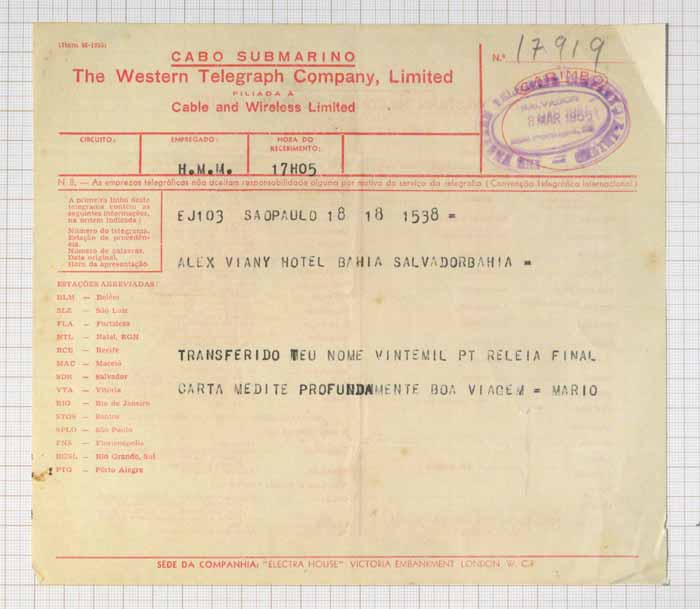 CABO SUBMARINO
The Western Telegraph Company, Limited
FILIADA À
Cable and Wireless Limited
N.º 17919
CARIMBO
SALVADOR
CIRCUITO:
EMPREGADO:
HORA DO RECEBIMENTO:
H.M.M.
17H05
N B. — As emprezas telegráficas não aceitam responsabilidade alguma por motivo do serviço da telegrafia (Convenção Telegráfica Internacional)
A primeira linha deste
telegrama contém as
seguintes informações,
na ordem indicada:
Número do telegrama.
Estação de procedên-
cia.
Número de palavras.
Data original.
Hora da apresentação
EJ103 SAOPAULO 18 18 1538 =
ALEX VIANY HOTEL BAHIA SALVADORBAHIA =
ESTAÇÕES ABREVIADAS:
BLM — Belém
SLZ — São Luiz
FLA — Fortaleza
NTL — Natal, RGN
RCE — Recife
MAC — Maceió
SDR — Salvador
VTA — Vitória
RIO — Rio de Janeiro
STOS — Santos
SPLO — São Paulo
FNS — Florianópolis
RGSL — Rio Grande, Sul
PTG — Pôrto Alegre
TRANSFERIDO TEU NOME VINTEMIL PT RELEIA FINAL
CARTA MEDITE PROFUNDAMENTE BOA VIAGEM = MARIO
SÉDE DA COMPANHIA: "ELECTRA HOUSE" VICTORIA EMBANKMENT LONDON W. C.